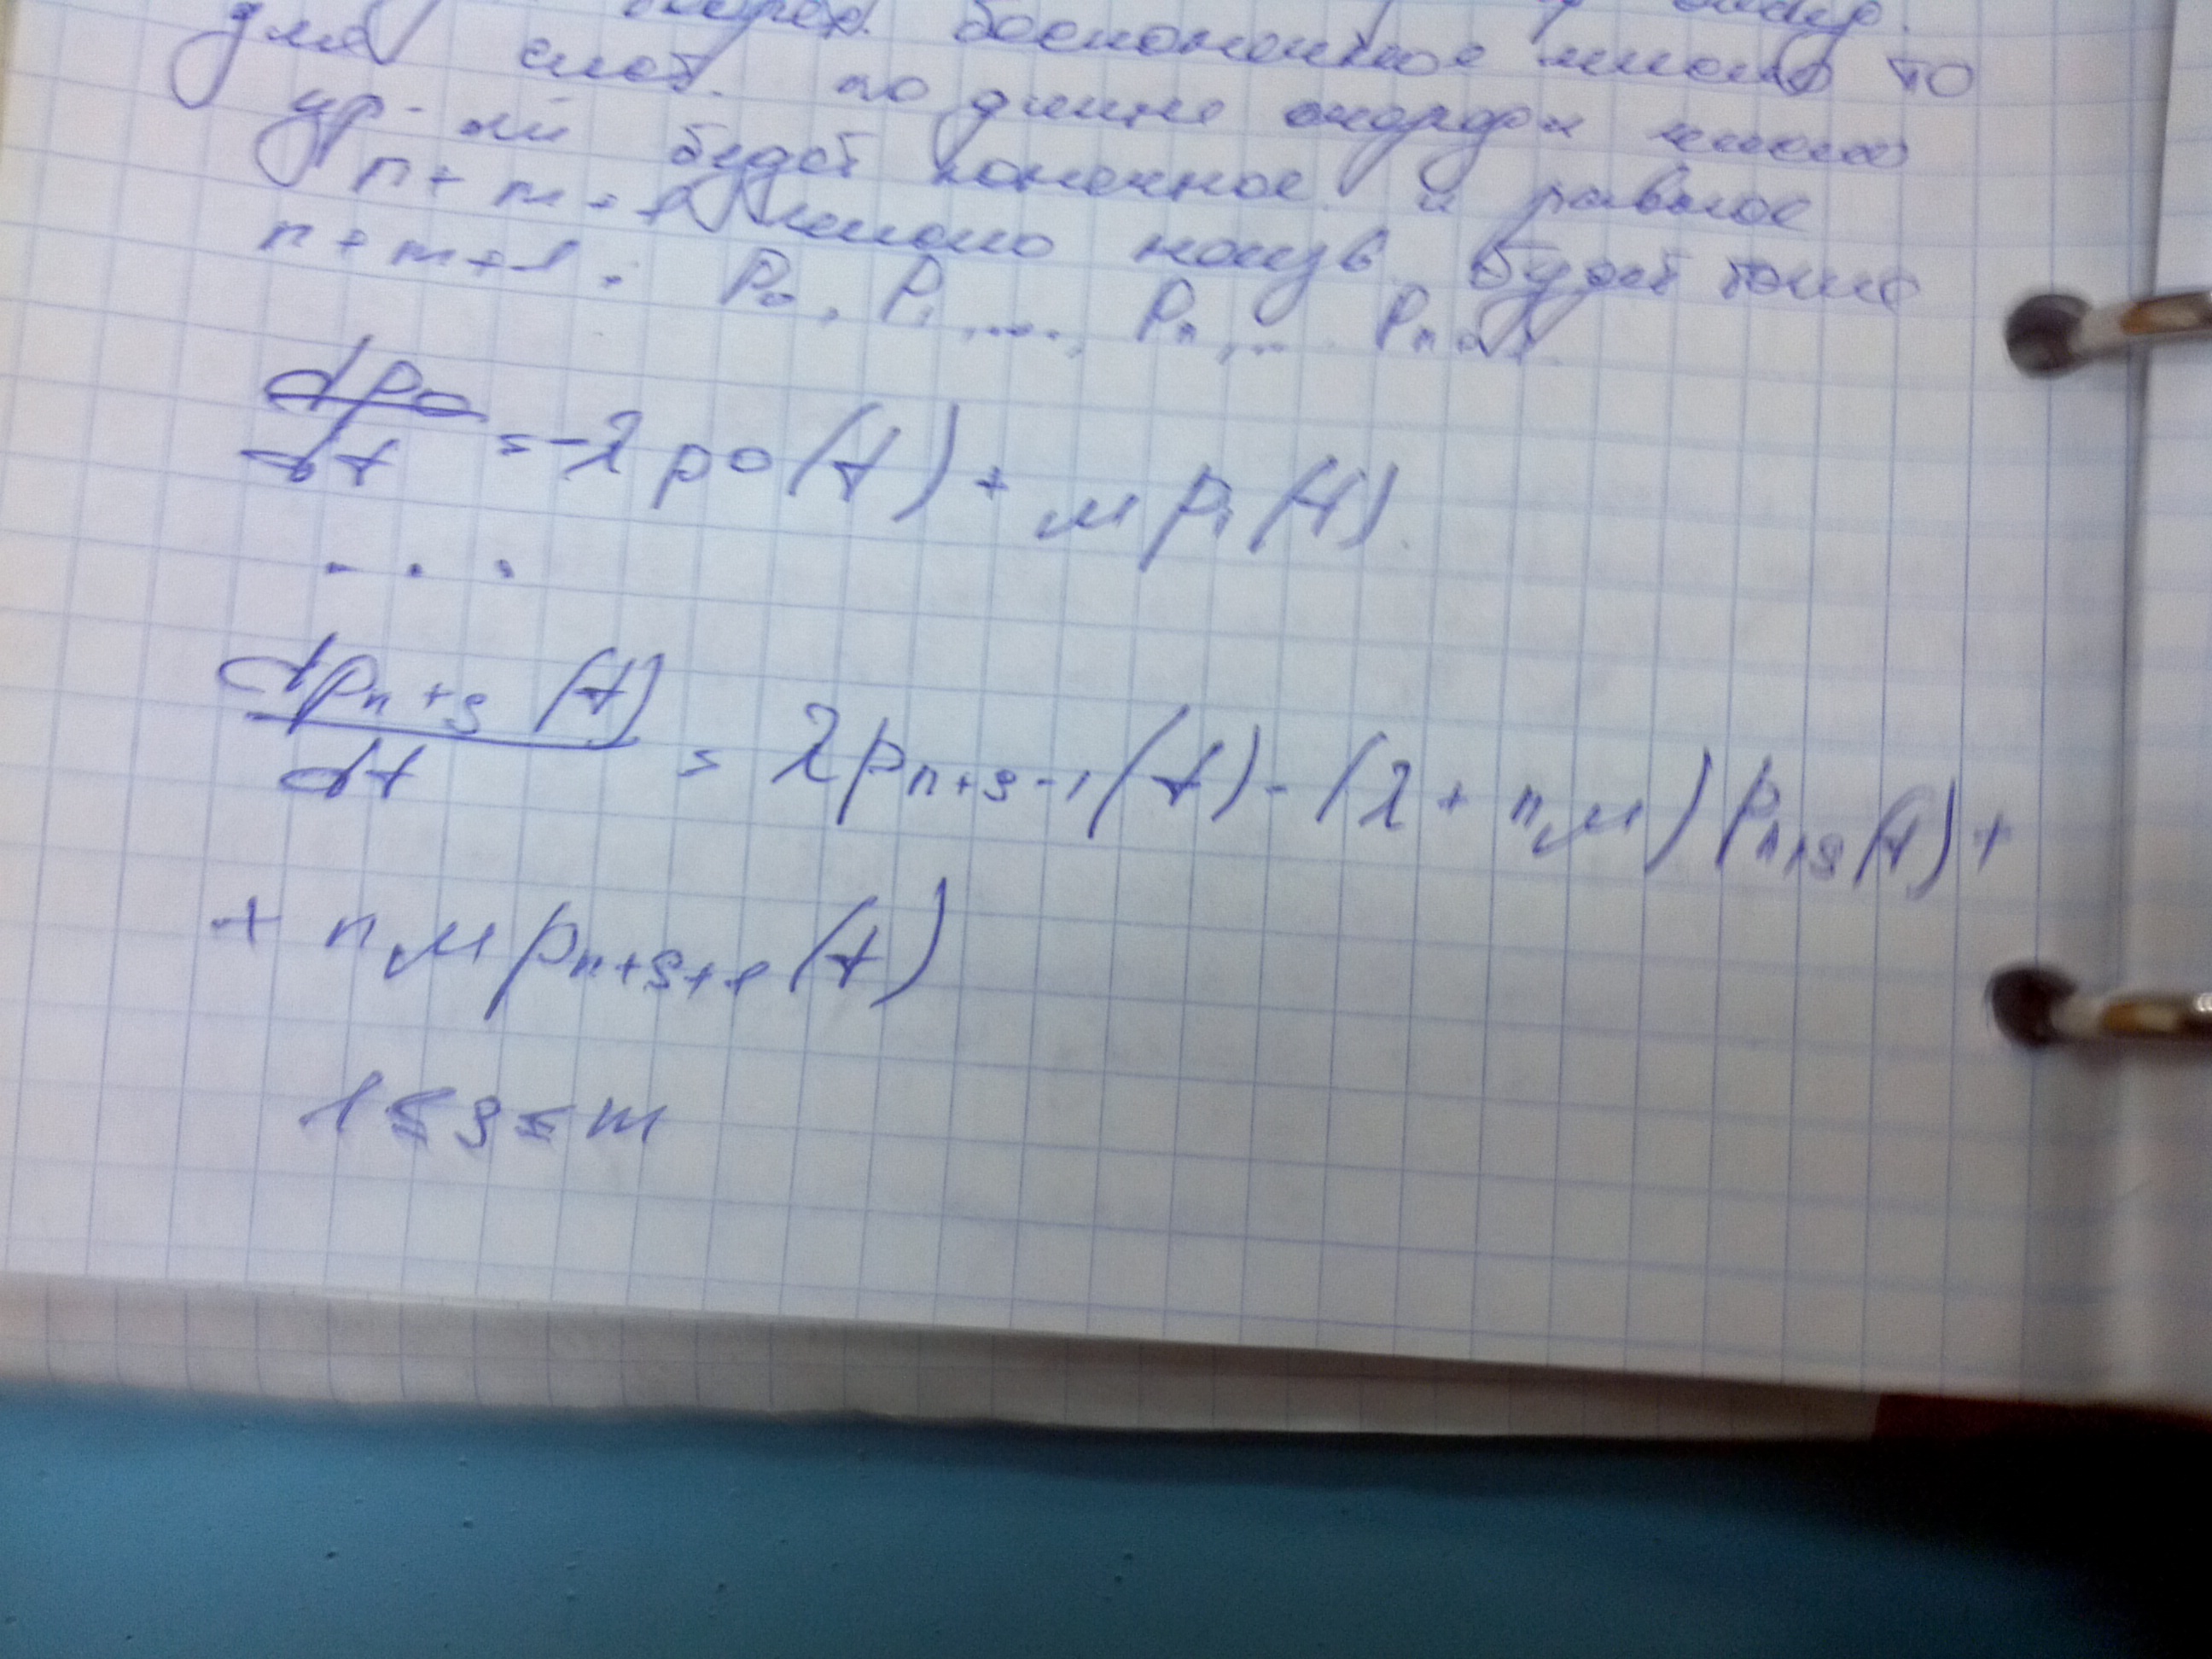 бесконечное число то
для сист. по длине очереди число
ур-ний будет конечное и равное
n+m+1 число неизв. будет тоже
n+m+1: P₀, P₁, ..., Pₙ, ...
dp₀/dt = -λp₀(t) + μp₁(t)
. . .
dpₙ₊ₛ(t)/dt = λpₙ₊ₛ₋₁(t) - (λ + nμ)pₙ₊ₛ(t) +
+ nμpₙ₊ₛ₊₁(t)
1 ≤ s ≤ m